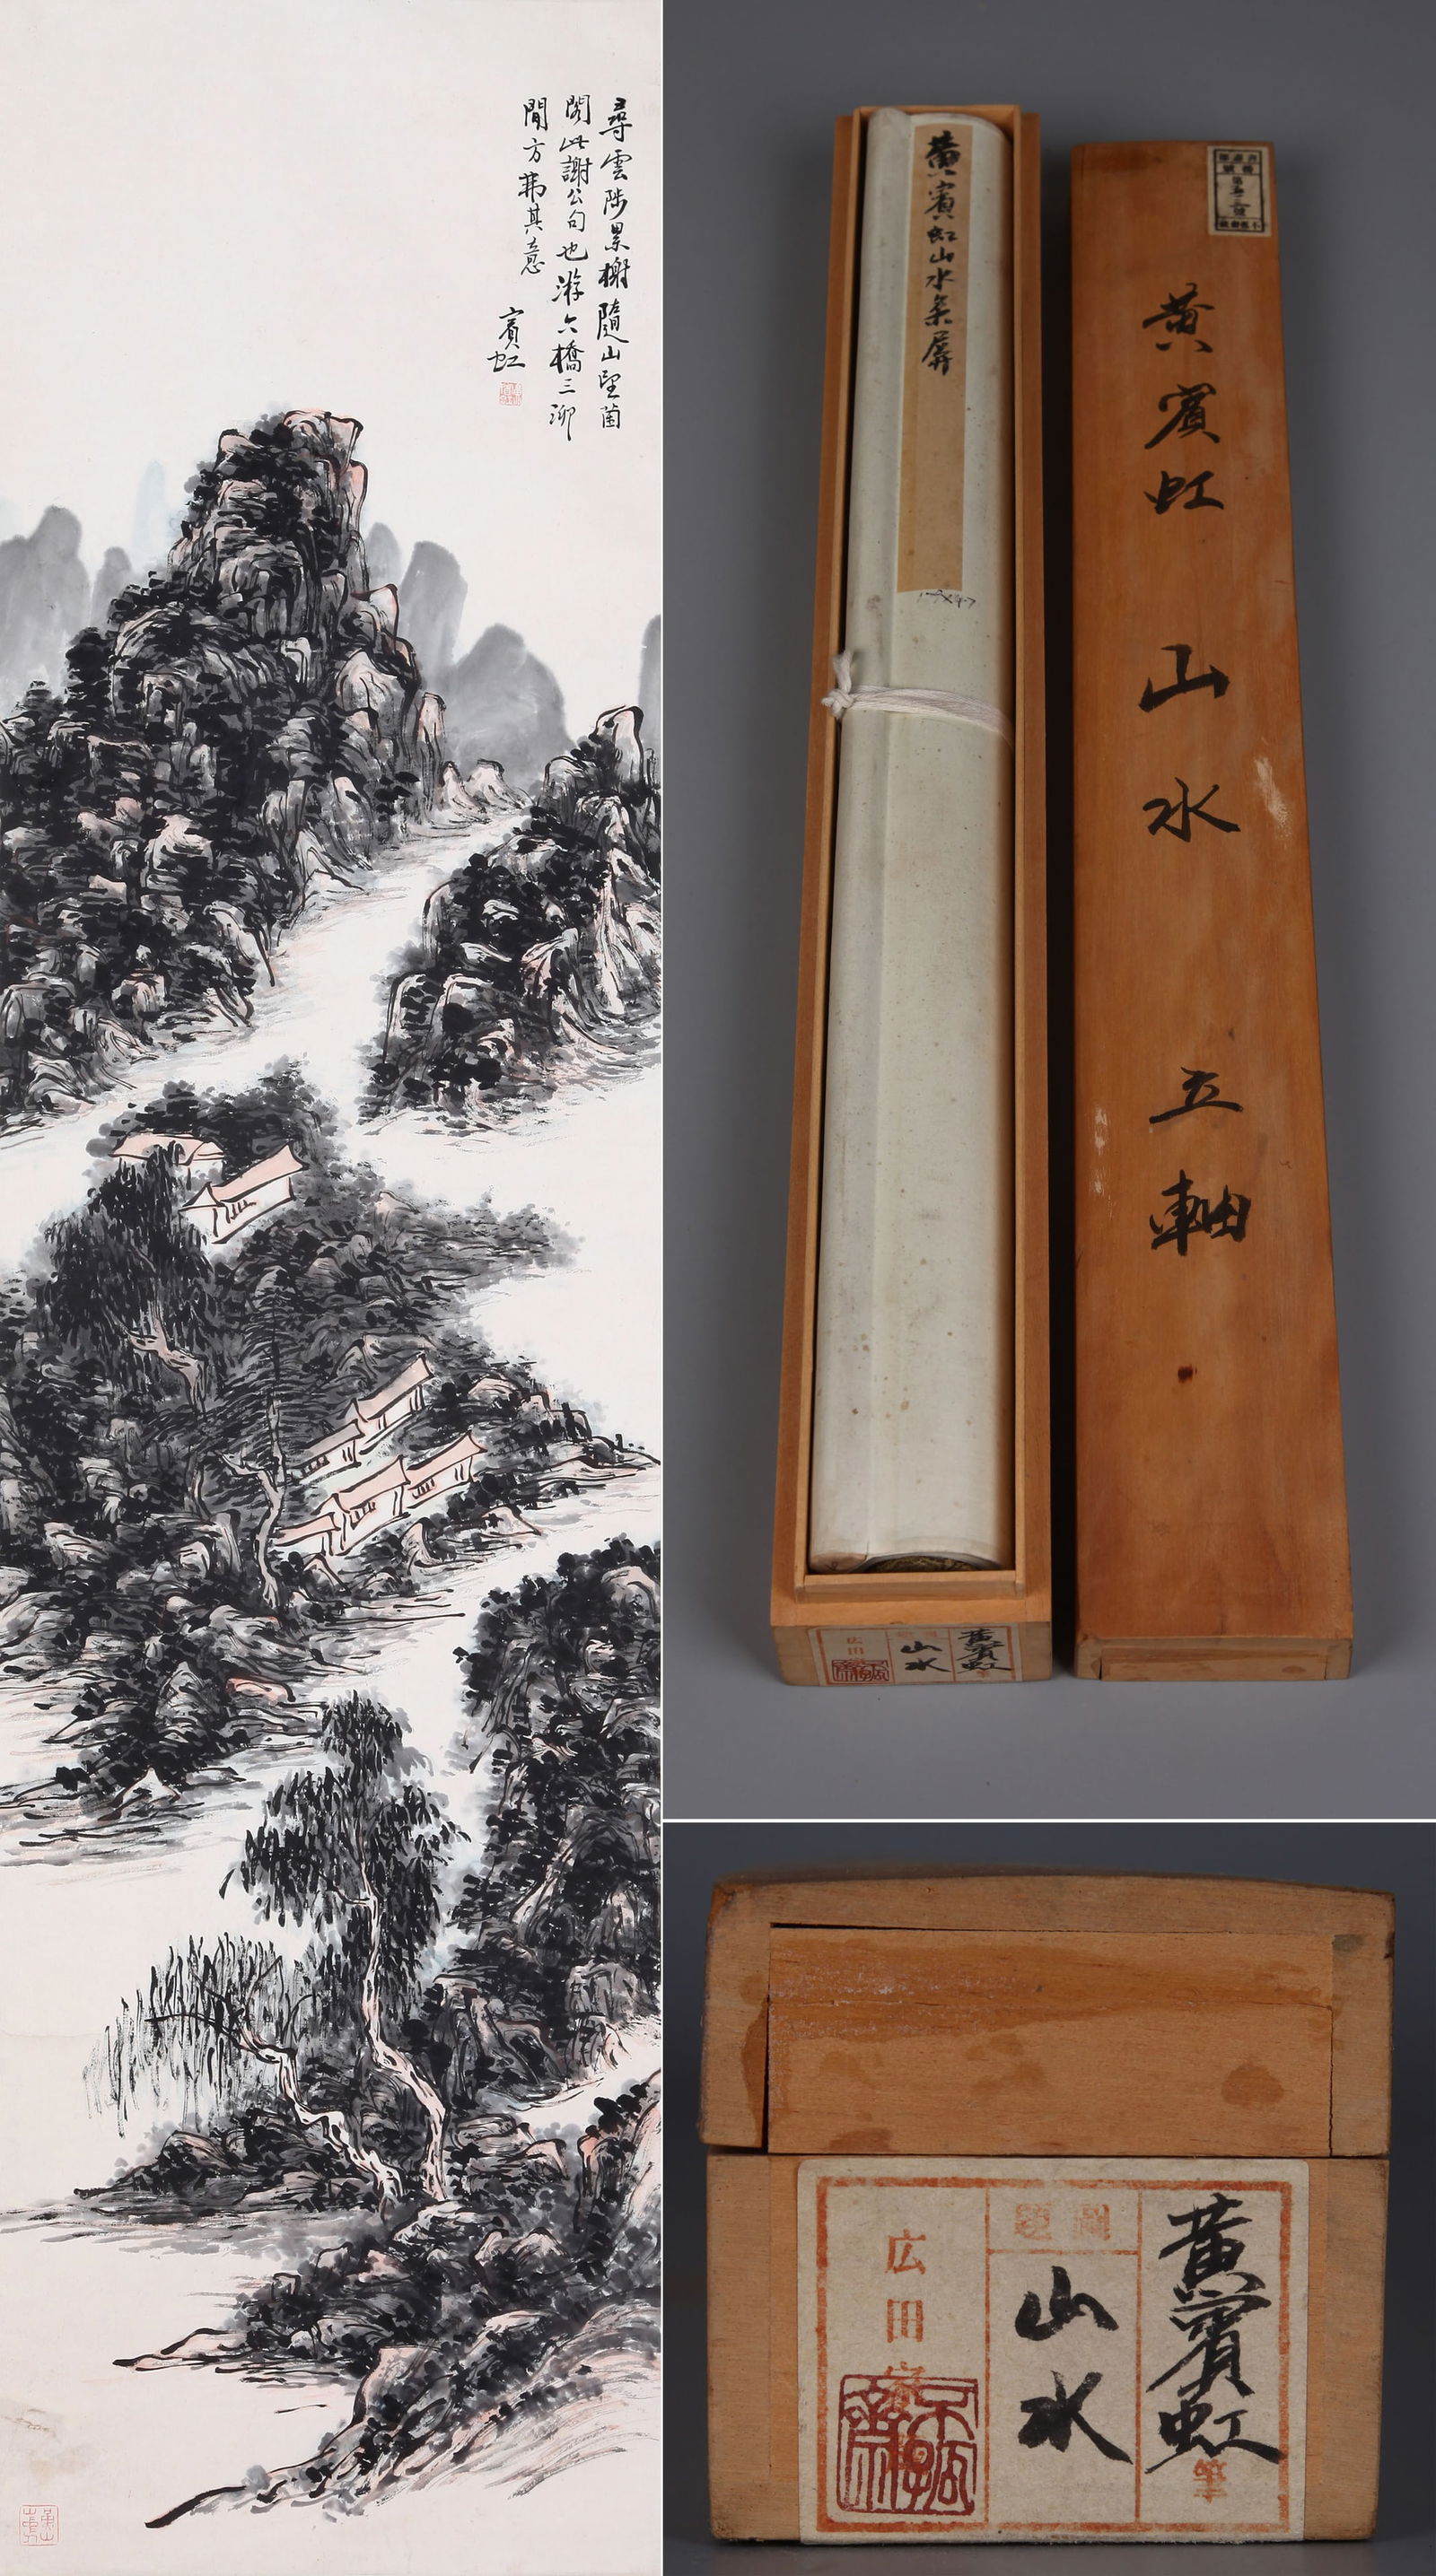 尋雲陟累榭隨山望菌
閣此謝公句也游六橋三泖
間方弗其意
賓虹
黃賓虹山水条屏
黄賓虹 山水 立軸
黄賓虹
山水
広田
黄賓虹
山水
広田
不孤齋